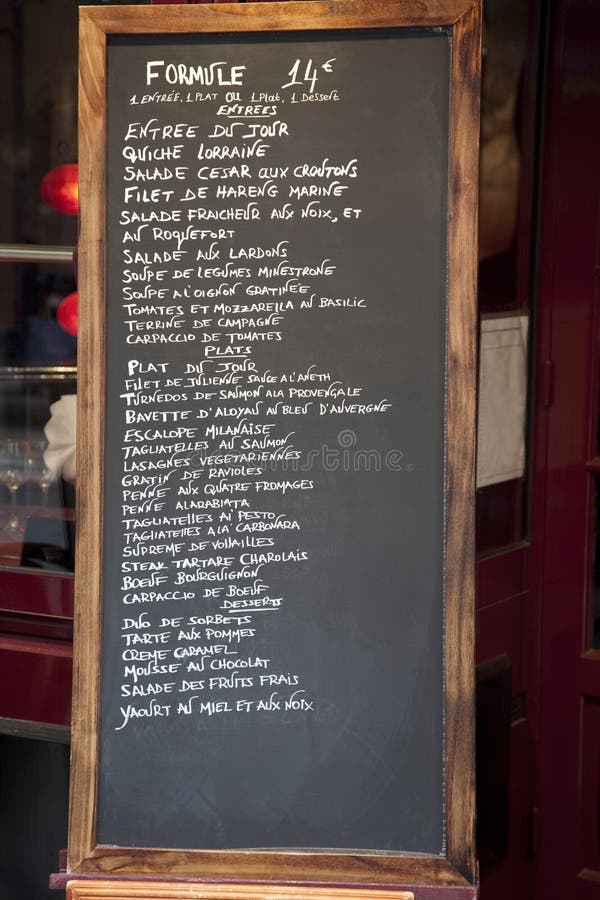 FORMULE 14€
1 ENTRÉE, 1 PLAT OU 1 Plat, 1 Dessert
ENTREES
ENTREE DU JOUR
QUICHE LORRAINE
SALADE CESAR AUX CROUTONS
FILET DE HARENG MARINE
SALADE FRAICHEUR AUX NOIX, ET
AU ROQUEFORT
SALADE AUX LARDONS
SOUPE DE LEGUMES MINESTRONE
SOUPE A L'OIGNON GRATINEE
TOMATES ET MOZZARELLA AU BASILIC
TERRINE DE CAMPAGNE
CARPACCIO DE TOMATES
PLATS
PLAT DU JOUR
FILET DE JULIENNE SAUCE A L'ANETH
TURNEDOS DE SAUMON A LA PROVENGALE
BAVETTE D'ALOYAU AU BLEU D'AUVERGNE
ESCALOPE MILANAISE
TAGLIATELLES AU SAUMON
LASAGNES VEGETARIENNES
GRATIN DE RAVIOLES
PENNE AUX QUATRE FROMAGES
PENNE ALARABIATA
TAGLIATELLES AI PESTO
TAGLIATELLES A LA CARBONARA
SUPREME DE VOLAILLES
STEAK TARTARE CHAROLAIS
BOEUF BOURGUIGNON
CARPACCIO DE BOEUF
DESSERTS
DUO DE SORBETS
TARTE AUX POMMES
CREME CARAMEL
MOUSSE AU CHOCOLAT
SALADE DES FRUITS FRAIS
YAOURT AU MIEL ET AUX NOIX
dreamstime